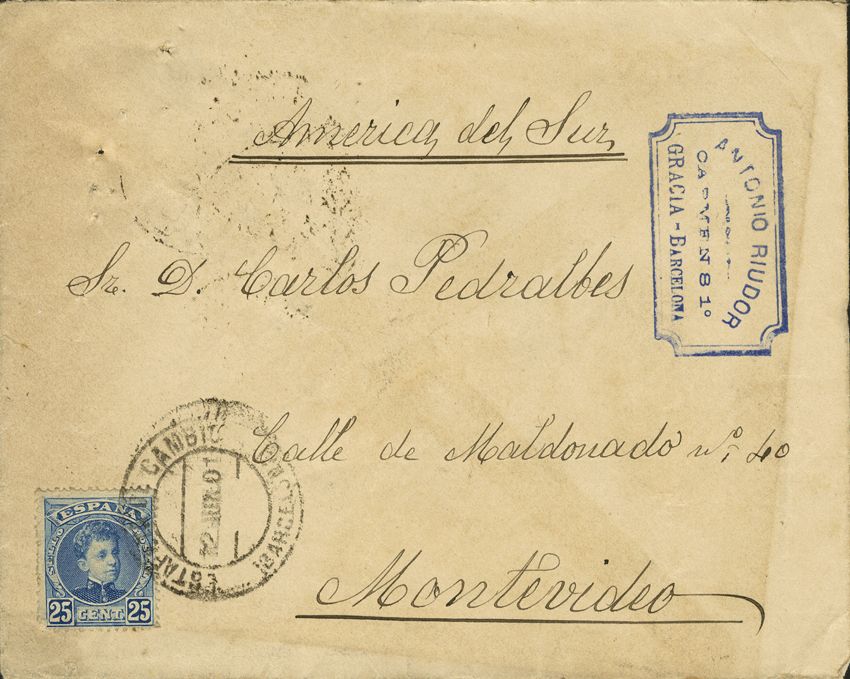 America del Sur
Sr. D. Carlos Pedralbes
Calle de Maldonado nº 40
Montevideo
ANTONIO RIUDOR
CARMEN 81º
GRACIA - BARCELONA
ESTAFETA DE CAMBIO
BARCELONA
12 JUN 01
ESPAÑA
25 CENT 25